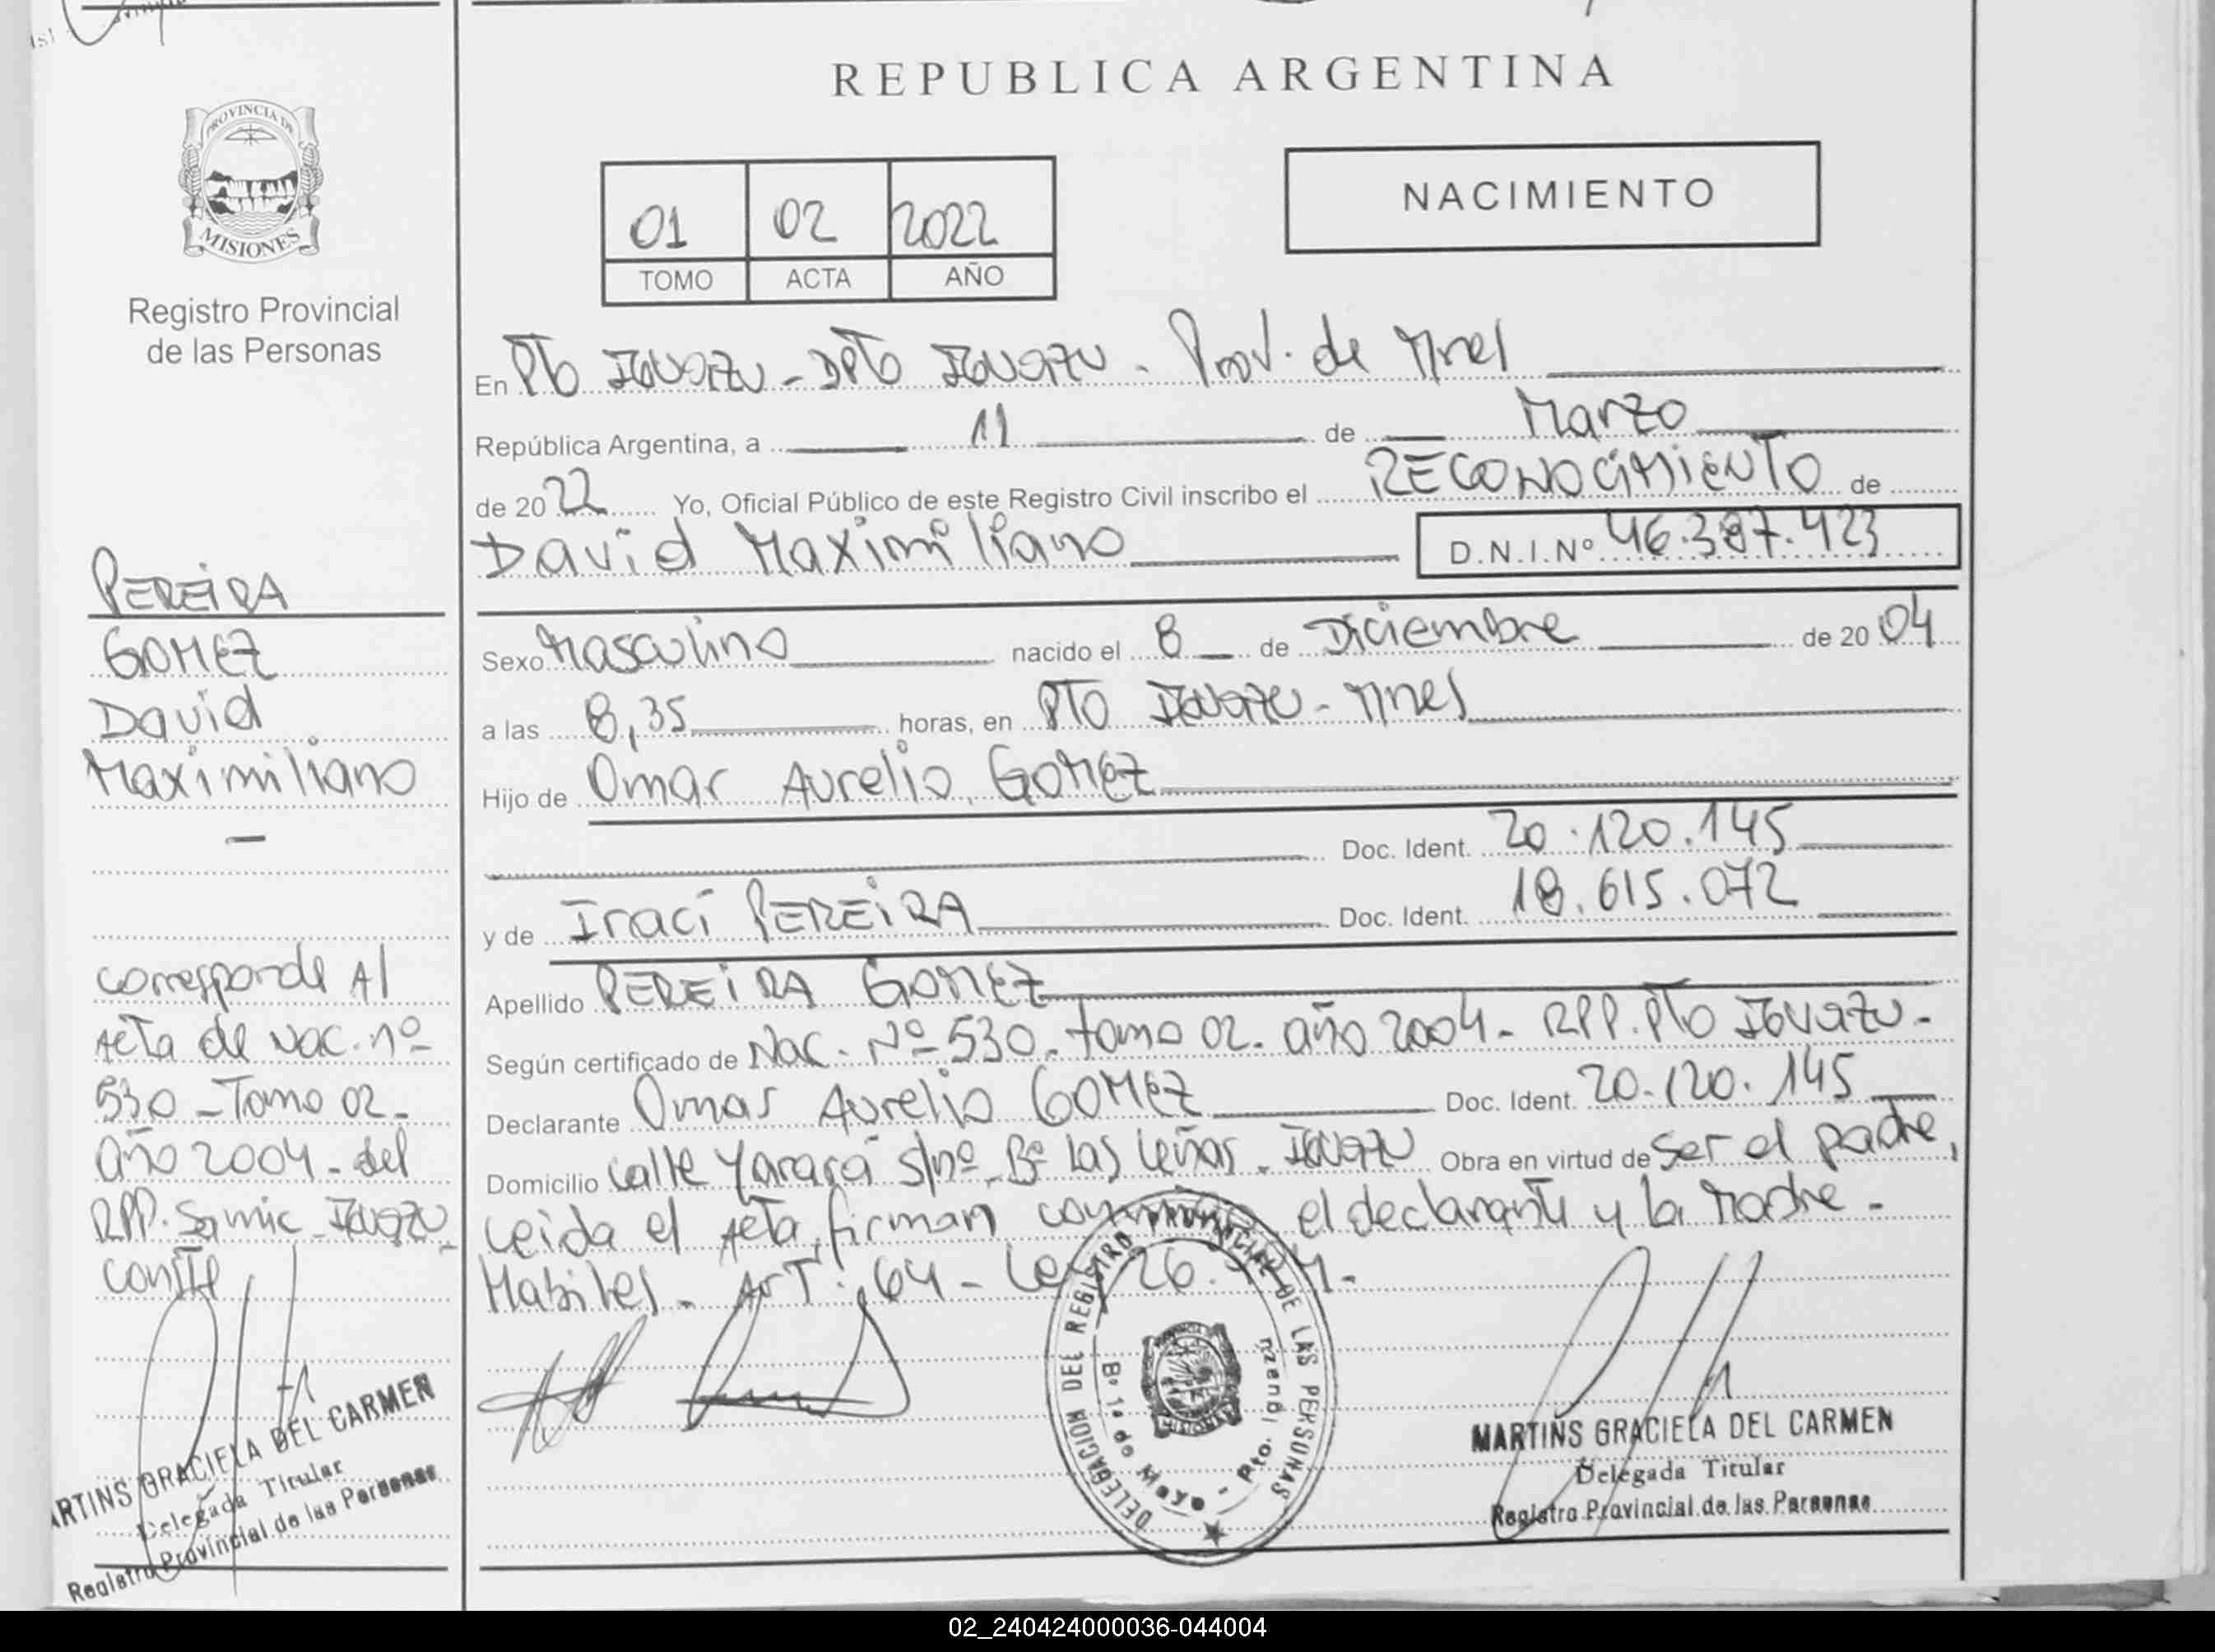 REPUBLICA ARGENTINA
PROVINCIA DE
MISIONES
Registro Provincial
de las Personas
01 02 2022
TOMO ACTA AÑO
NACIMIENTO
En Pto Iguazu - Dpto Iguazu - Prov. de Mnes
República Argentina, a 11 de Marzo
de 2022 Yo, Oficial Público de este Registro Civil inscribo el RECONOCIMIENTO de
David Maximiliano D.N.I.Nº 46.387.423
Sexo Masculino nacido el 8 de Diciembre de 2004
a las 8,35 horas, en Pto Iguazu - Mnes
Hijo de Omar Aurelio GOMEZ
Doc. Ident. 20.120.145
y de Iraci PEREIRA Doc. Ident. 18.615.072
Apellido PEREIRA GOMEZ
Según certificado de Nac. Nº 530. tomo 02. año 2004 - RPP. Pto Iguazu -
Declarante Omar Aurelio GOMEZ Doc. Ident. 20.120.145
Domicilio Calle Yarará s/nº - Bº Las Leñas. Iguazu Obra en virtud de ser el padre,
Leida el Acta, firman el declarante y la Madre -
Habiles. Art. 64 - Ley 26.
PEREIRA
GOMEZ
David
Maximiliano
corresponde Al
Acta de Nac. nº
530 - Tomo 02 -
año 2004 - del
RPP. Samic - Iguazu -
conste
RTINS GRACIELA DEL CARMEN
Delegada Titular
Registro Provincial de las Personas
DELEGACION DEL REGISTRO PROVINCIAL DE LAS PERSONAS
Bº 1º de Mayo - Pto. Iguazu
MARTINS GRACIELA DEL CARMEN
Delegada Titular
Registro Provincial de las Personas
02_240424000036-044004